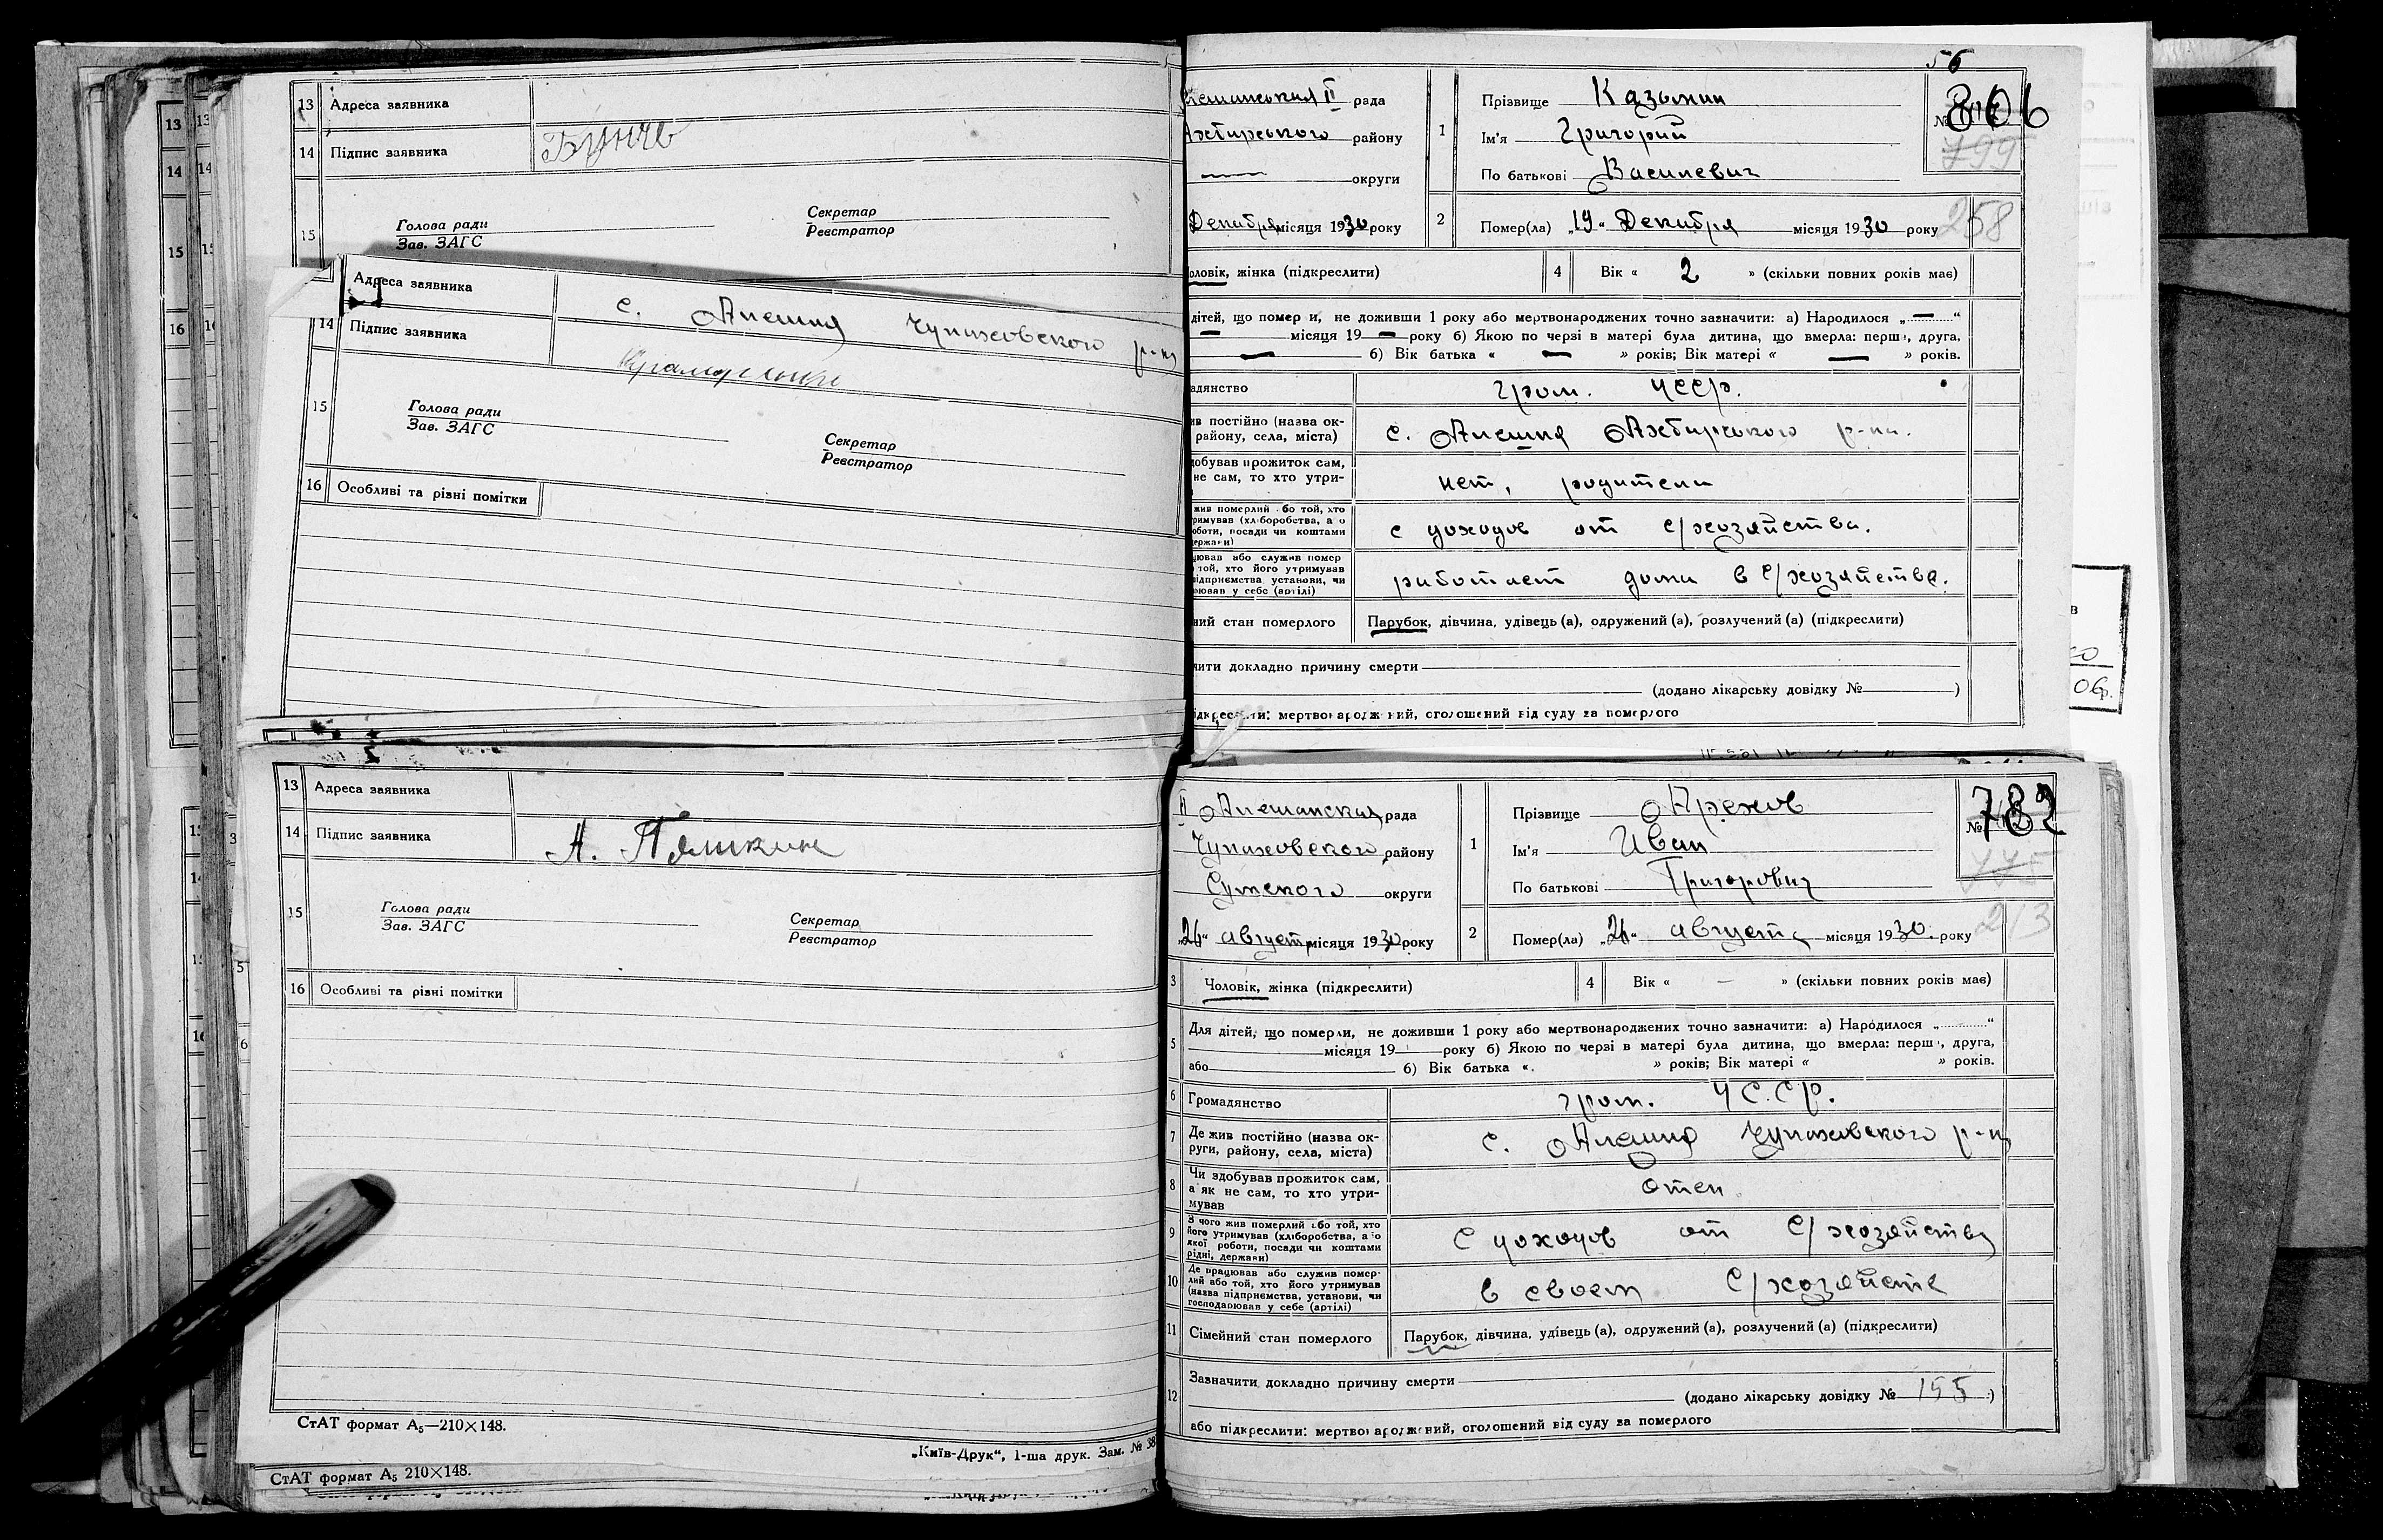 13 Адреса заявника
14 Підпис заявника
15 Голова ради Секретар
Зав. ЗАГС Реєстратор
Адреса заявника с. Алешня Чупаховского р-на
14 Підпис заявника
15 Голова ради
Зав. ЗАГС Секретар
Реєстратор
16 Особливі та різні помітки
13 Адреса заявника
14 Підпис заявника А.
15 Голова ради Секретар
Зав. ЗАГС Реєстратор
16 Особливі та різні помітки
СтАТ формат А₅—210×148.
„Київ-Друк“, 1-ша друк. Зам. № 38
СтАТ формат А₅ 210×148.
56
рада 1 Прізвище Казьмин № 806
Ахтирського району Ім'я Григорий 799
округи По батькові Василевич
Декабря місяця 1930 року 2 Помер(ла) „19“ Декабря місяця 1930 року 258
оловік, жінка (підкреслити) 4 Вік « 2 » (скільки повних років має)
дітей, що померли, не доживши 1 року або мертвонароджених точно зазначити: а) Народилося „—“
— місяця 19 — року б) Якою по черзі в матері була дитина, що вмерла: перша, друга,
— б) Вік батька « — » років; Вік матері « — » років.
адянство гром. УССР.
ив постійно (назва ок-
району, села, міста) с. Алешня Ахтирського р-на.
добував прожиток сам,
не сам, то хто утри- нет, родители
жив померлий або той, хто
римував (хліборобства, а о
оботи, посади чи коштами
ержави) с доходов от с/хозяйства.
цював або служив помер
той, хто його утримував
ідприємства установи, чи
рював у себе (артілі) работает дома в с/хозяйства.
ний стан померлого Парубок, дівчина, удівець (а), одружений (а), розлучений (а) (підкреслити)
чити докладно причину смерти
(додано лікарську довідку № )
ідкреслити: мертвонароджений, оголошений від суду за померлого
II Алешанская рада 1 Прізвище Арехов № 782
Чупаховского району Ім'я Иван 775
Сумского округи По батькові Григорович
„26“ августа місяця 1930 року 2 Помер(ла) „26“ августа місяця 1930. року 213
3 Чоловік, жінка (підкреслити) 4 Вік « — » (скільки повних років має)
5 Для дітей, що померли, не доживши 1 року або мертвонароджених точно зазначити: а) Народилося „ “
місяця 19 року б) Якою по черзі в матері була дитина, що вмерла: перша, друга,
або б) Вік батька « » років; Вік матері « » років.
6 Громадянство гром. УС.СР.
7 Де жив постійно (назва ок-
руги, району, села, міста) с. Алешня Чупаховского р-на
8 Чи здобував прожиток сам,
а як не сам, то хто утри-
мував Отец
9 З чого жив померлий або той, хто
його утримував (хліборобства, а о
якої роботи, посади чи коштами
рідні, держави) С доходов от с/хозяйства
10 Де працював або служив помер-
лий або той, хто його утримував
(назва підприємства, установи, чи
господарював у себе (артілі) в своем с/хозяйстве
11 Сімейний стан померлого Парубок, дівчина, удівець (а), одружений (а), розлучений (а) (підкреслити)
12 Зазначити докладно причину смерти
(додано лікарську довідку № 155)
або підкреслити: мертвонароджений, оголошений від суду за померлого